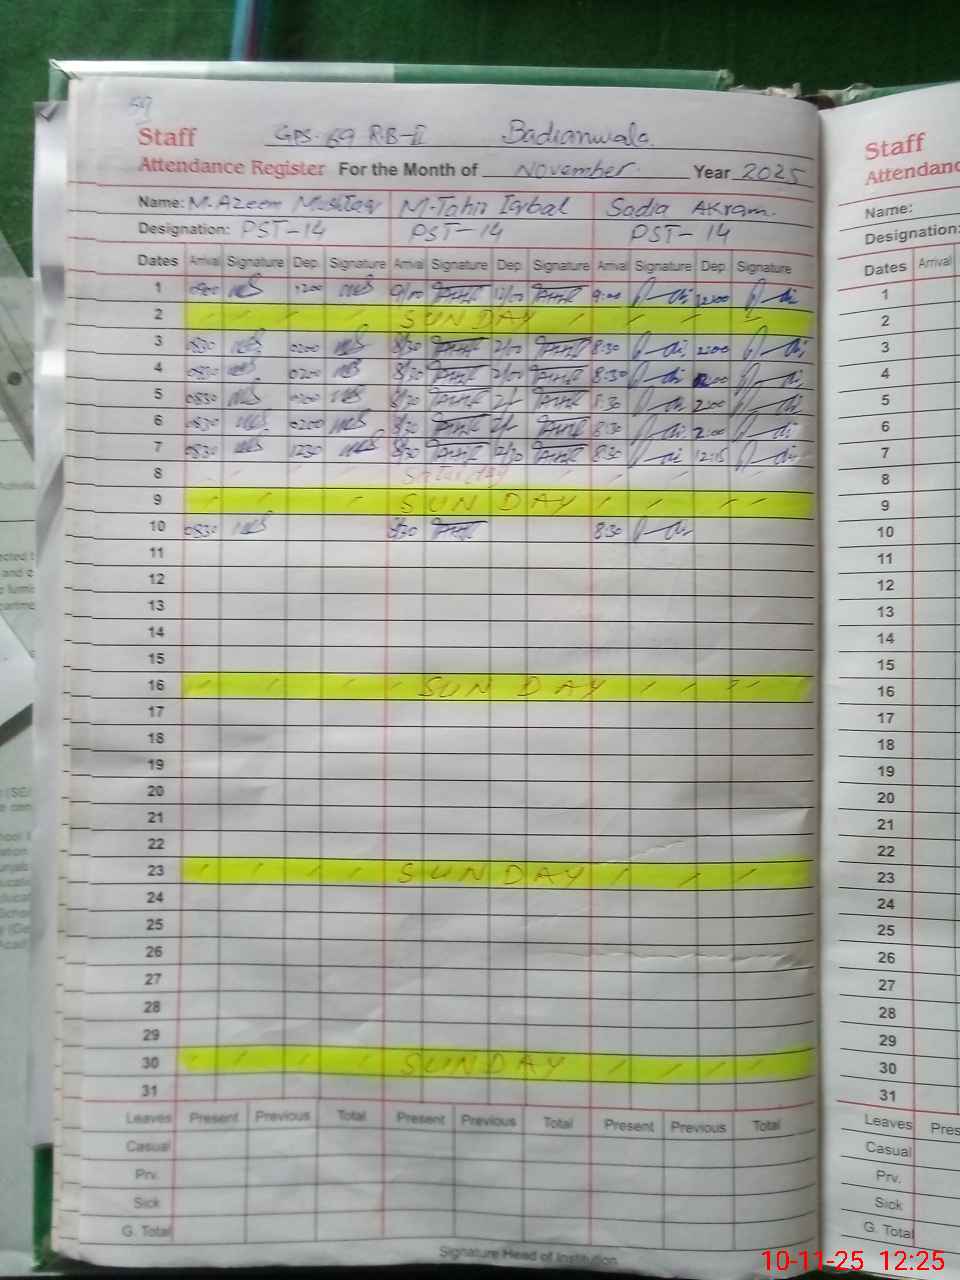 59
Staff GPS. 69 R.B-II Badianwala.
Attendance Register For the Month of November. Year 2025
Name: M-Azeem Mushtaq M-Tahir Iqbal Sadia Akram.
Designation: PST-14 PST-14 PST-14
Dates Arrival Signature Dep. Signature Arrival Signature Dep. Signature Arrival Signature Dep. Signature
1 0900 1200 9/00 12/00 9:00 12:00
2 SUNDAY
3 0830 0200 8/30 2/00 8:30 2:00
4 0830 0200 8/30 2/00 8:30
5 0830 0200 8/30 8:30 2:00
6 0830 0200 8/30 8:30 2:00
7 0830 1230 8/30 12/30 8:30 12:15
8 Saturday
9 SUNDAY
10 0830 8/30 8:30
11
12
13
14
15
16 SUNDAY
17
18
19
20
21
22
23 SUNDAY
24
25
26
27
28
29
30 SUNDAY
31
Leaves Present Previous Total Present Previous Total Present Previous Total
Casual
Prv.
Sick
G. Total
Signature Head of Institution
Staff
Attendanc
Name:
Designation:
Dates Arrival
1
2
3
4
5
6
7
8
9
10
11
12
13
14
15
16
17
18
19
20
21
22
23
24
25
26
27
28
29
30
31
Leaves Pres
Casual
Prv.
Sick
G. Total
10-11-25 12:25